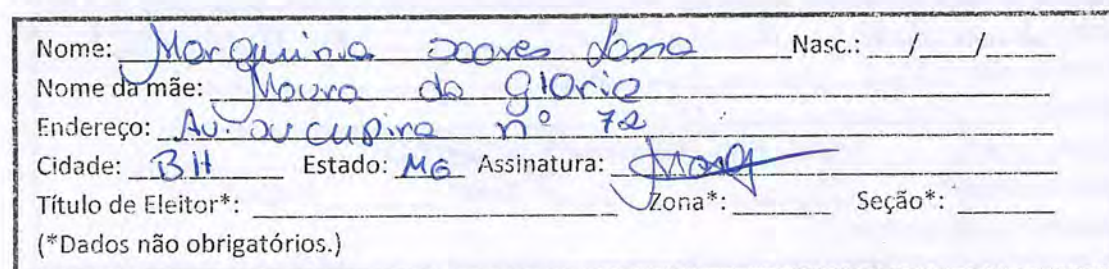 Nome: Marquinia soares Nasc.: / /
Nome da mãe: Moura da Gloria
Endereço: Av. nº 72
Cidade: BH Estado: MG Assinatura:
Título de Eleitor*: Zona*: Seção*:
(*Dados não obrigatórios.)